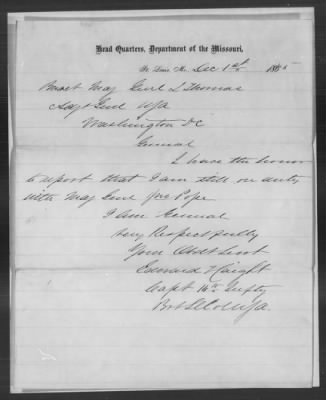 Head Quarters, Department of the Missouri,
St. Louis Mo. Dec 1st 1865
Brevet Maj Genl L Thomas
Adjt Genl USA
Washington DC
General
I have the honor
to report that I am still on duty
with Maj Genl Jno Pope
I Am General
Very Respectfully
Your Obdt Servt
Edward Haight
Capt 16th Infty
Bvt Lt Col USA.